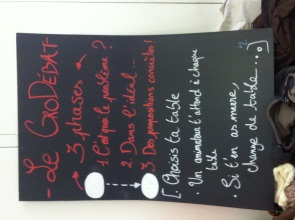 - Le GroDÉBAT -
→ 3 phases
1. C'est quoi le problème ?
2. Dans l'idéal...
3. Des propositions concrètes !
[ Choisis ta table
• Un animateur t'attend à chaque
table
• Si t'en as marre,
change de table...]